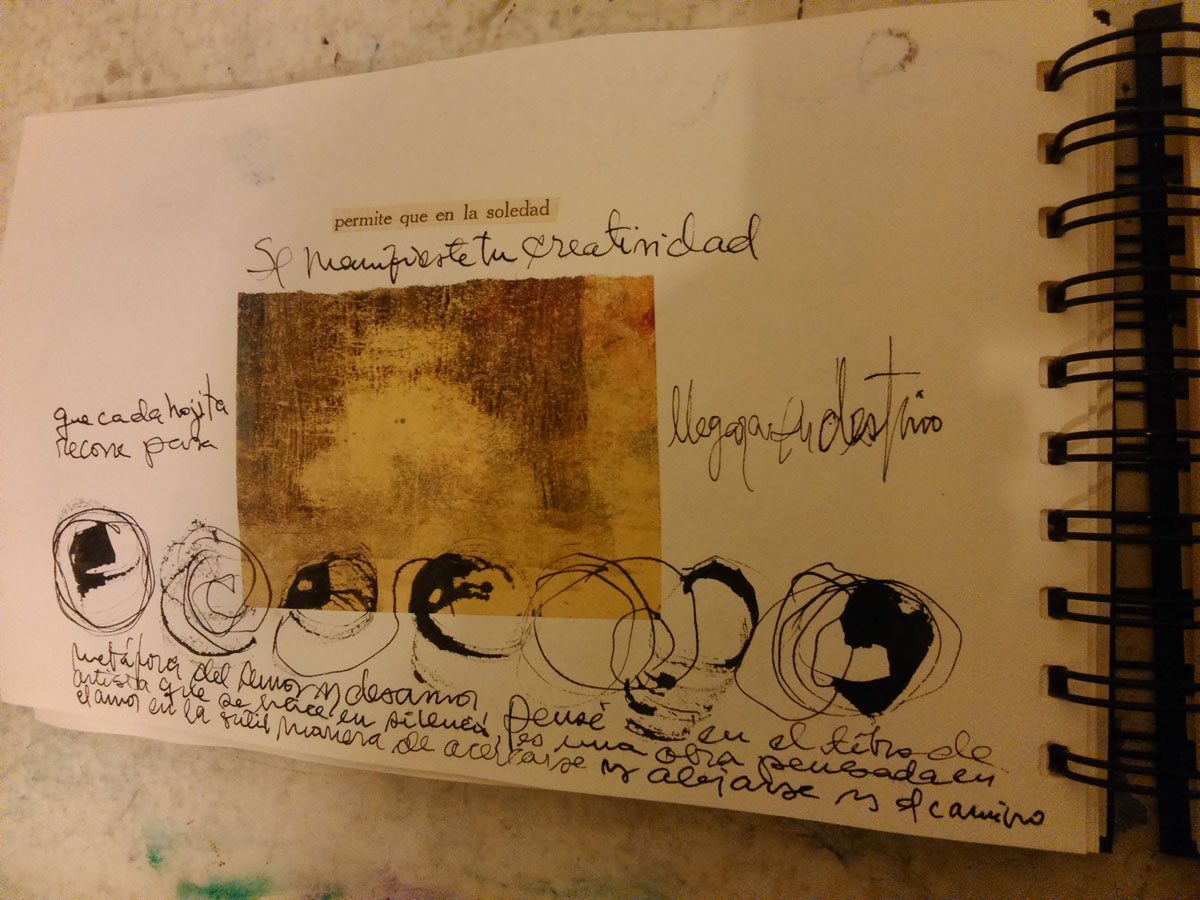 permite que en la soledad
se manifieste tu creatividad
que cada hojita
recorre para
llegar a su destino
metáfora del Amor y desamor pensé en el libro de
artista que se hace en silencio, es una obra pensada en
el amor en la sutil manera de acercarse y alejarse y el camino